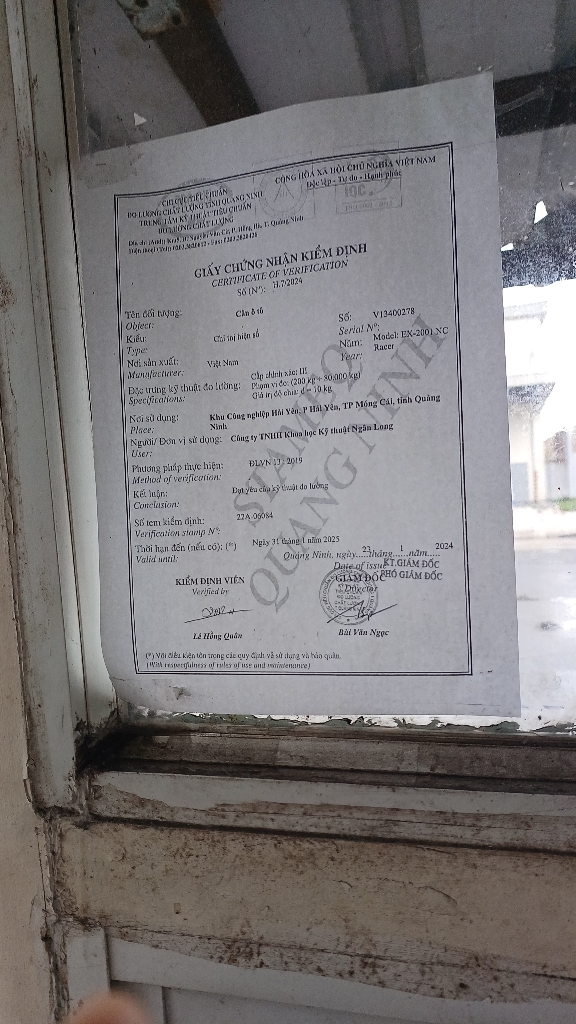 CHI CỤC TIÊU CHUẨN
ĐO LƯỜNG CHẤT LƯỢNG TỈNH QUẢNG NINH
TRUNG TÂM KỸ THUẬT TIÊU CHUẨN
ĐO LƯỜNG CHẤT LƯỢNG
CỘNG HÒA XÃ HỘI CHỦ NGHĨA VIỆT NAM
Độc lập - Tự do - Hạnh phúc
GIẤY CHỨNG NHẬN KIỂM ĐỊNH
CERTIFICATE OF VERIFICATION
Số (N°): H.7/2024
Tên đối tượng: Cân ô tô
Object:
Số: V13400278
Serial N°:
Kiểu: Chỉ thị hiện số
Type:
Năm: Model: EX-2001 NC
Year: Racer
Nơi sản xuất: Việt Nam
Manufacturer:
Đặc trưng kỹ thuật đo lường: Cấp chính xác: III
Specifications: Phạm vi đo: (200 kg ÷ 80.000 kg)
Giá trị độ chia: d = 10 kg
Nơi sử dụng: Khu Công nghiệp Hải Yên, P Hải Yên, TP Móng Cái, tỉnh Quảng
Place: Ninh
Người/ Đơn vị sử dụng: Công ty TNHH Khoa học Kỹ thuật Ngân Long
User:
Phương pháp thực hiện: ĐLVN 13 : 2019
Method of verification:
Kết luận: Đạt yêu cầu kỹ thuật đo lường
Conclusion:
Số tem kiểm định: 22A-06084
Verification stamp N°:
Thời hạn đến (nếu có): (*) Ngày 31 tháng 1 năm 2025
Valid until:
Quảng Ninh, ngày 23 tháng 1 năm 2024
Date of issue
KT.GIÁM ĐỐC
KIỂM ĐỊNH VIÊN
Verified by
GIÁM ĐỐC PHÓ GIÁM ĐỐC
Director
Lê Hồng Quân
Bùi Văn Ngọc
(*) Với điều kiện tôn trọng các quy định về sử dụng và bảo quản.
(With respectfulness of rules of use and maintenance)
STAMEQ
QUANG NINH